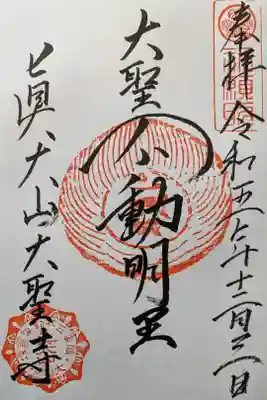 奉拝 令和五年十二月三日
大聖不動明王
犬山大聖寺